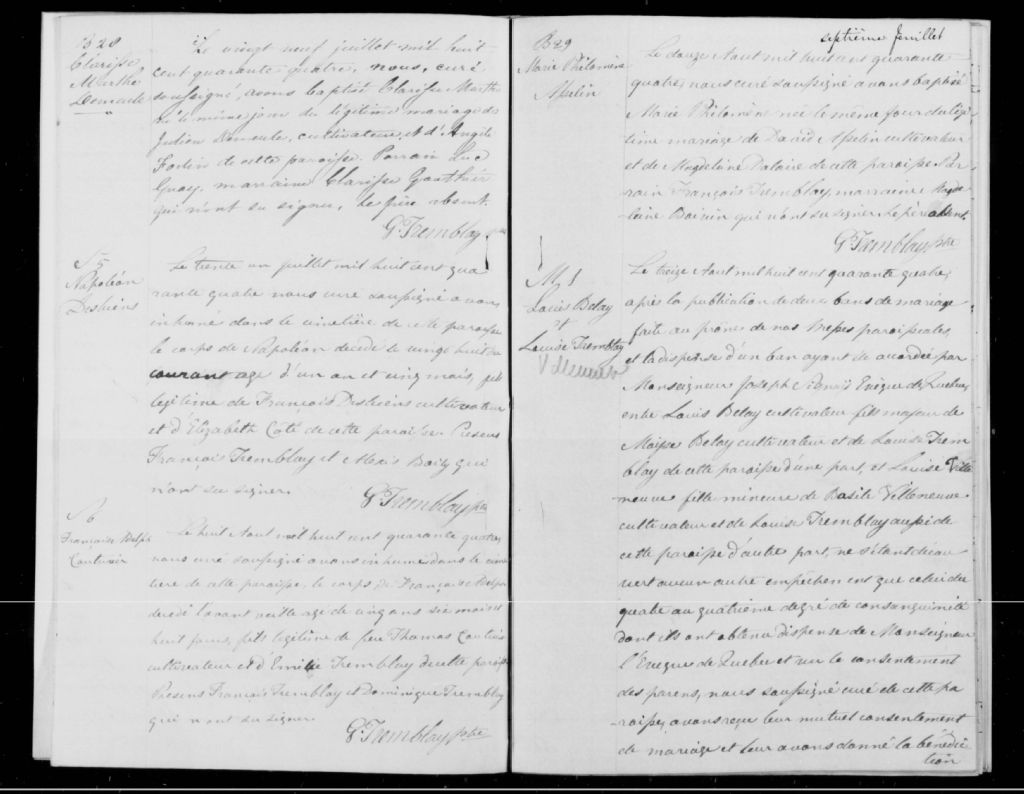 B 28
Clarisse
Marthe
Demeule
Le vingt neuf juillet mil huit
cent quarante quatre, nous, curé
soussigné, avons baptisé Clarisse Marthe
née le même jour du légitime mariage de
Julien Demeule, cultivateur, et d'Angèle
Fortin de cette paroisse. Parrain Luc
Guay, marraine Clarisse Gauthier
qui n'ont su signer, le père absent.
G. Tremblay ptre
S 5
Napoléon
Deshiens
Le trente un juillet mil huit cent qua
rante quatre nous curé soussigné avons
inhumé dans le cimetière de cette paroisse
le corps de Napoléon decédé le vingt huit du
courant agé d'un an et cinq mois, fils
légitime de François Deshiens cultivateur
et d'Elizabeth Coté de cette paroisse. Presens
François Tremblay et Alexis Baily qui
n'ont su signer.
G. Tremblay ptre
S 6
Françoise Delph
Couturier
Le huit Aout mil huit cent quarante quatre,
nous curé soussigné avons inhumé dans le cime
tiere de cette paroisse, le corps de François
decédé l'avant veille agé de cinq ans six mois et
huit jours, fils légitime de feu Thomas Couturier
cultivateur et d'Emilie Tremblay de cette paroisse
Presens François Tremblay et Dominique Tremblay
qui n'ont su signer.
G. Tremblay ptre
septième feuillet
B 29
Marie Philomène
Asselin
Le douze Aout mil huit cent quarante
quatre, nous curé soussigné avons baptisé
Marie Philomène née le même jour du légi
time mariage de David Asselin cultivateur
et de Magdeleine Dalaire de cette paroisse. Par
rain François Tremblay, marraine Magde
laine Boivin qui n'ont su signer. Le père absent.
G. Tremblay ptre
M 1
Louis Belay
et
Louise Tremblay
Villeneuve
Le treize Aout mil huit cent quarante quatre,
après la publication de deux bans de mariage
faite au prônes de nos Messes paroissiales,
et la dispense d'un ban ayant été accordée par
Monseigneur Joseph Signaÿ Evêque de Quebec,
entre Louis Belay cultivateur fils majeur de
Moïse Belay cultivateur et de Louise Trem
blay de cette paroisse d'une part, et Louise Ville
neuve fille mineure de Basile Villeneuve
cultivateur et de Louise Tremblay aussi de
cette paroisse d'autre part, ne s'étant décou
vert aucun autre empêchement que celui du
quatre au quatrième degré de consanguinité
dont ils ont obtenu dispense de Monseigneur
l'Evêque de Quebec et vu le consentement
des parens, nous soussigné curé de cette pa
roisse, avons reçu leur mutuel consentement
de mariage et leur avons donné la bénédic
tion